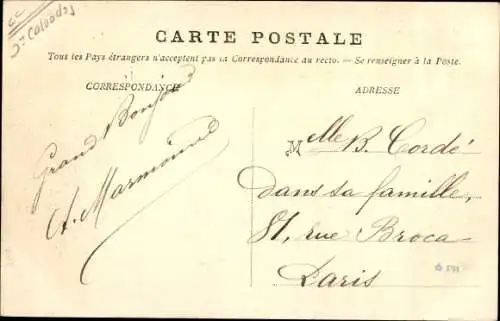 CC
Calvados
CARTE POSTALE
Tous les Pays étrangers n'acceptent pas la Correspondance au recto. — Se renseigner à la Poste.
CORRESPONDANCE
Grand Bonjour
A. Marmoinne
ADRESSE
Mlle B. Cordé
dans sa famille,
81, rue Broca
Paris